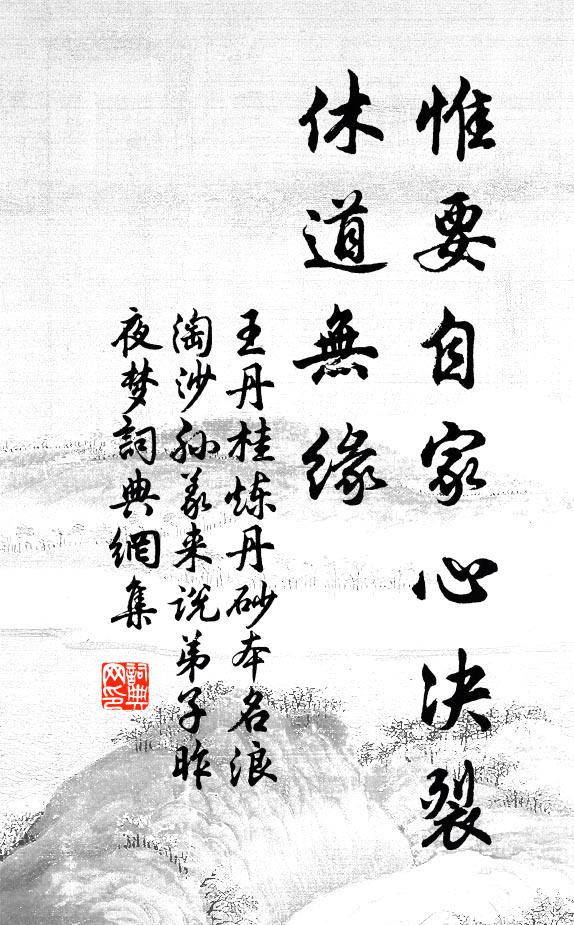 惟要自家心决裂
休道無緣
王丹桂炼丹砂本名浪
淘沙孙义来说弟子昨
夜梦詞典網集
詞典网印